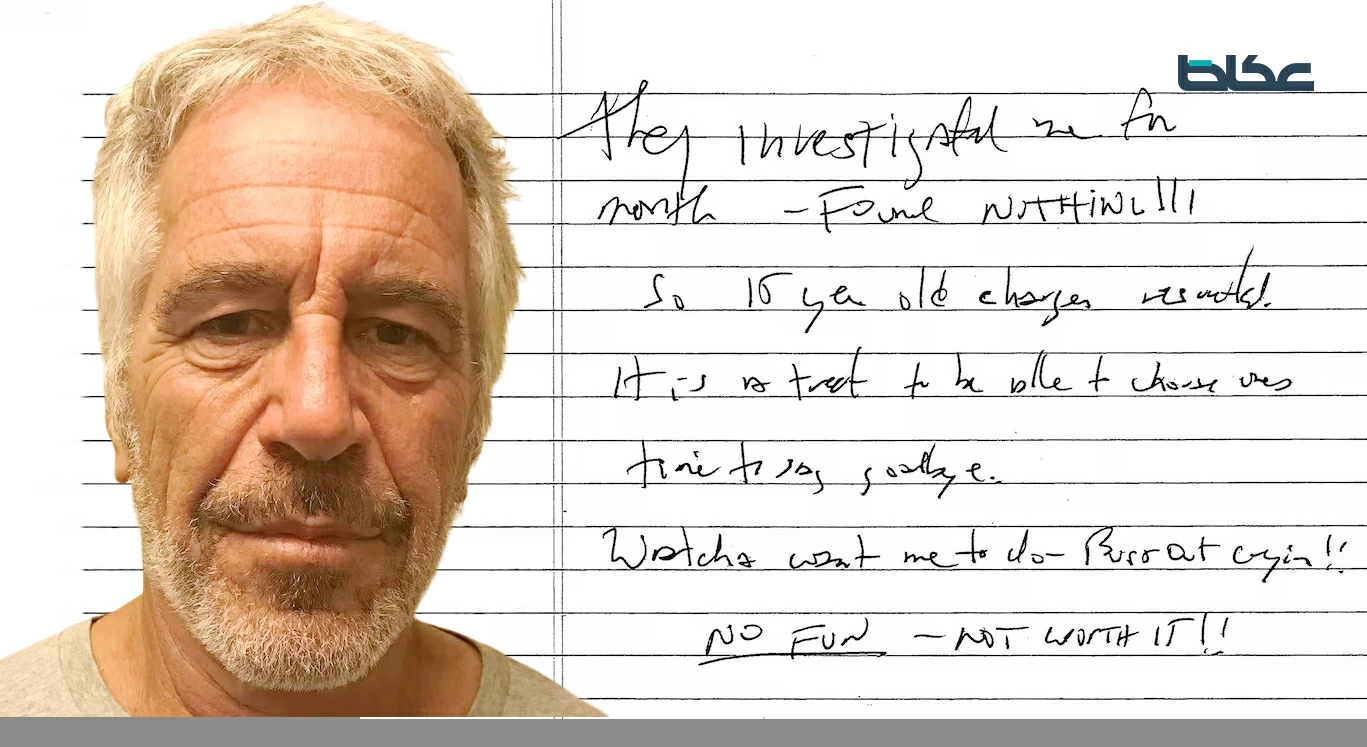 عكاظ
They investigated me for
month – Found NOTHING!!!
So 15 year old charges resulted.
It is a treat to be able to choose ones
time to say goodbye.
Watcha want me to do – Burst out cryin!!
NO FUN – NOT WORTH IT!!